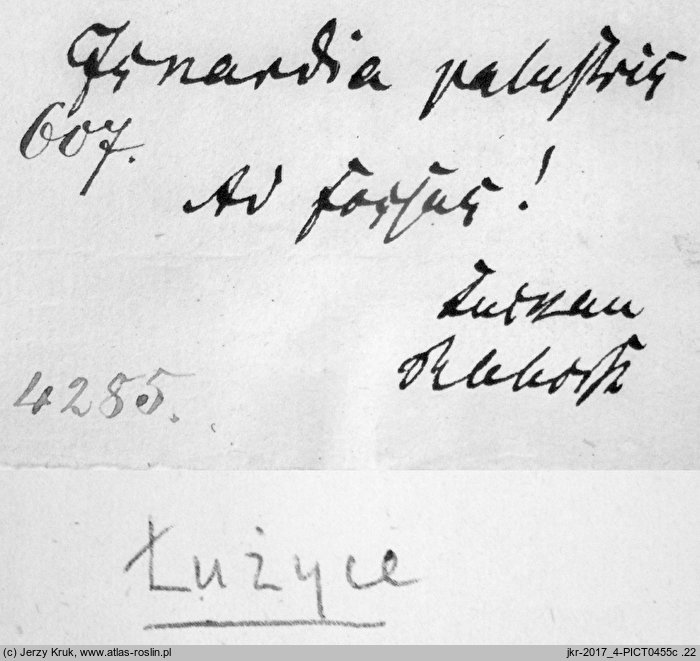 Isnardia palustris
607.
Ad fossas!
Luckau
4285.
Łużyce
(c) Jerzy Kruk, www.atlas-roslin.pl
jkr-2017_4-PICT0455c .22